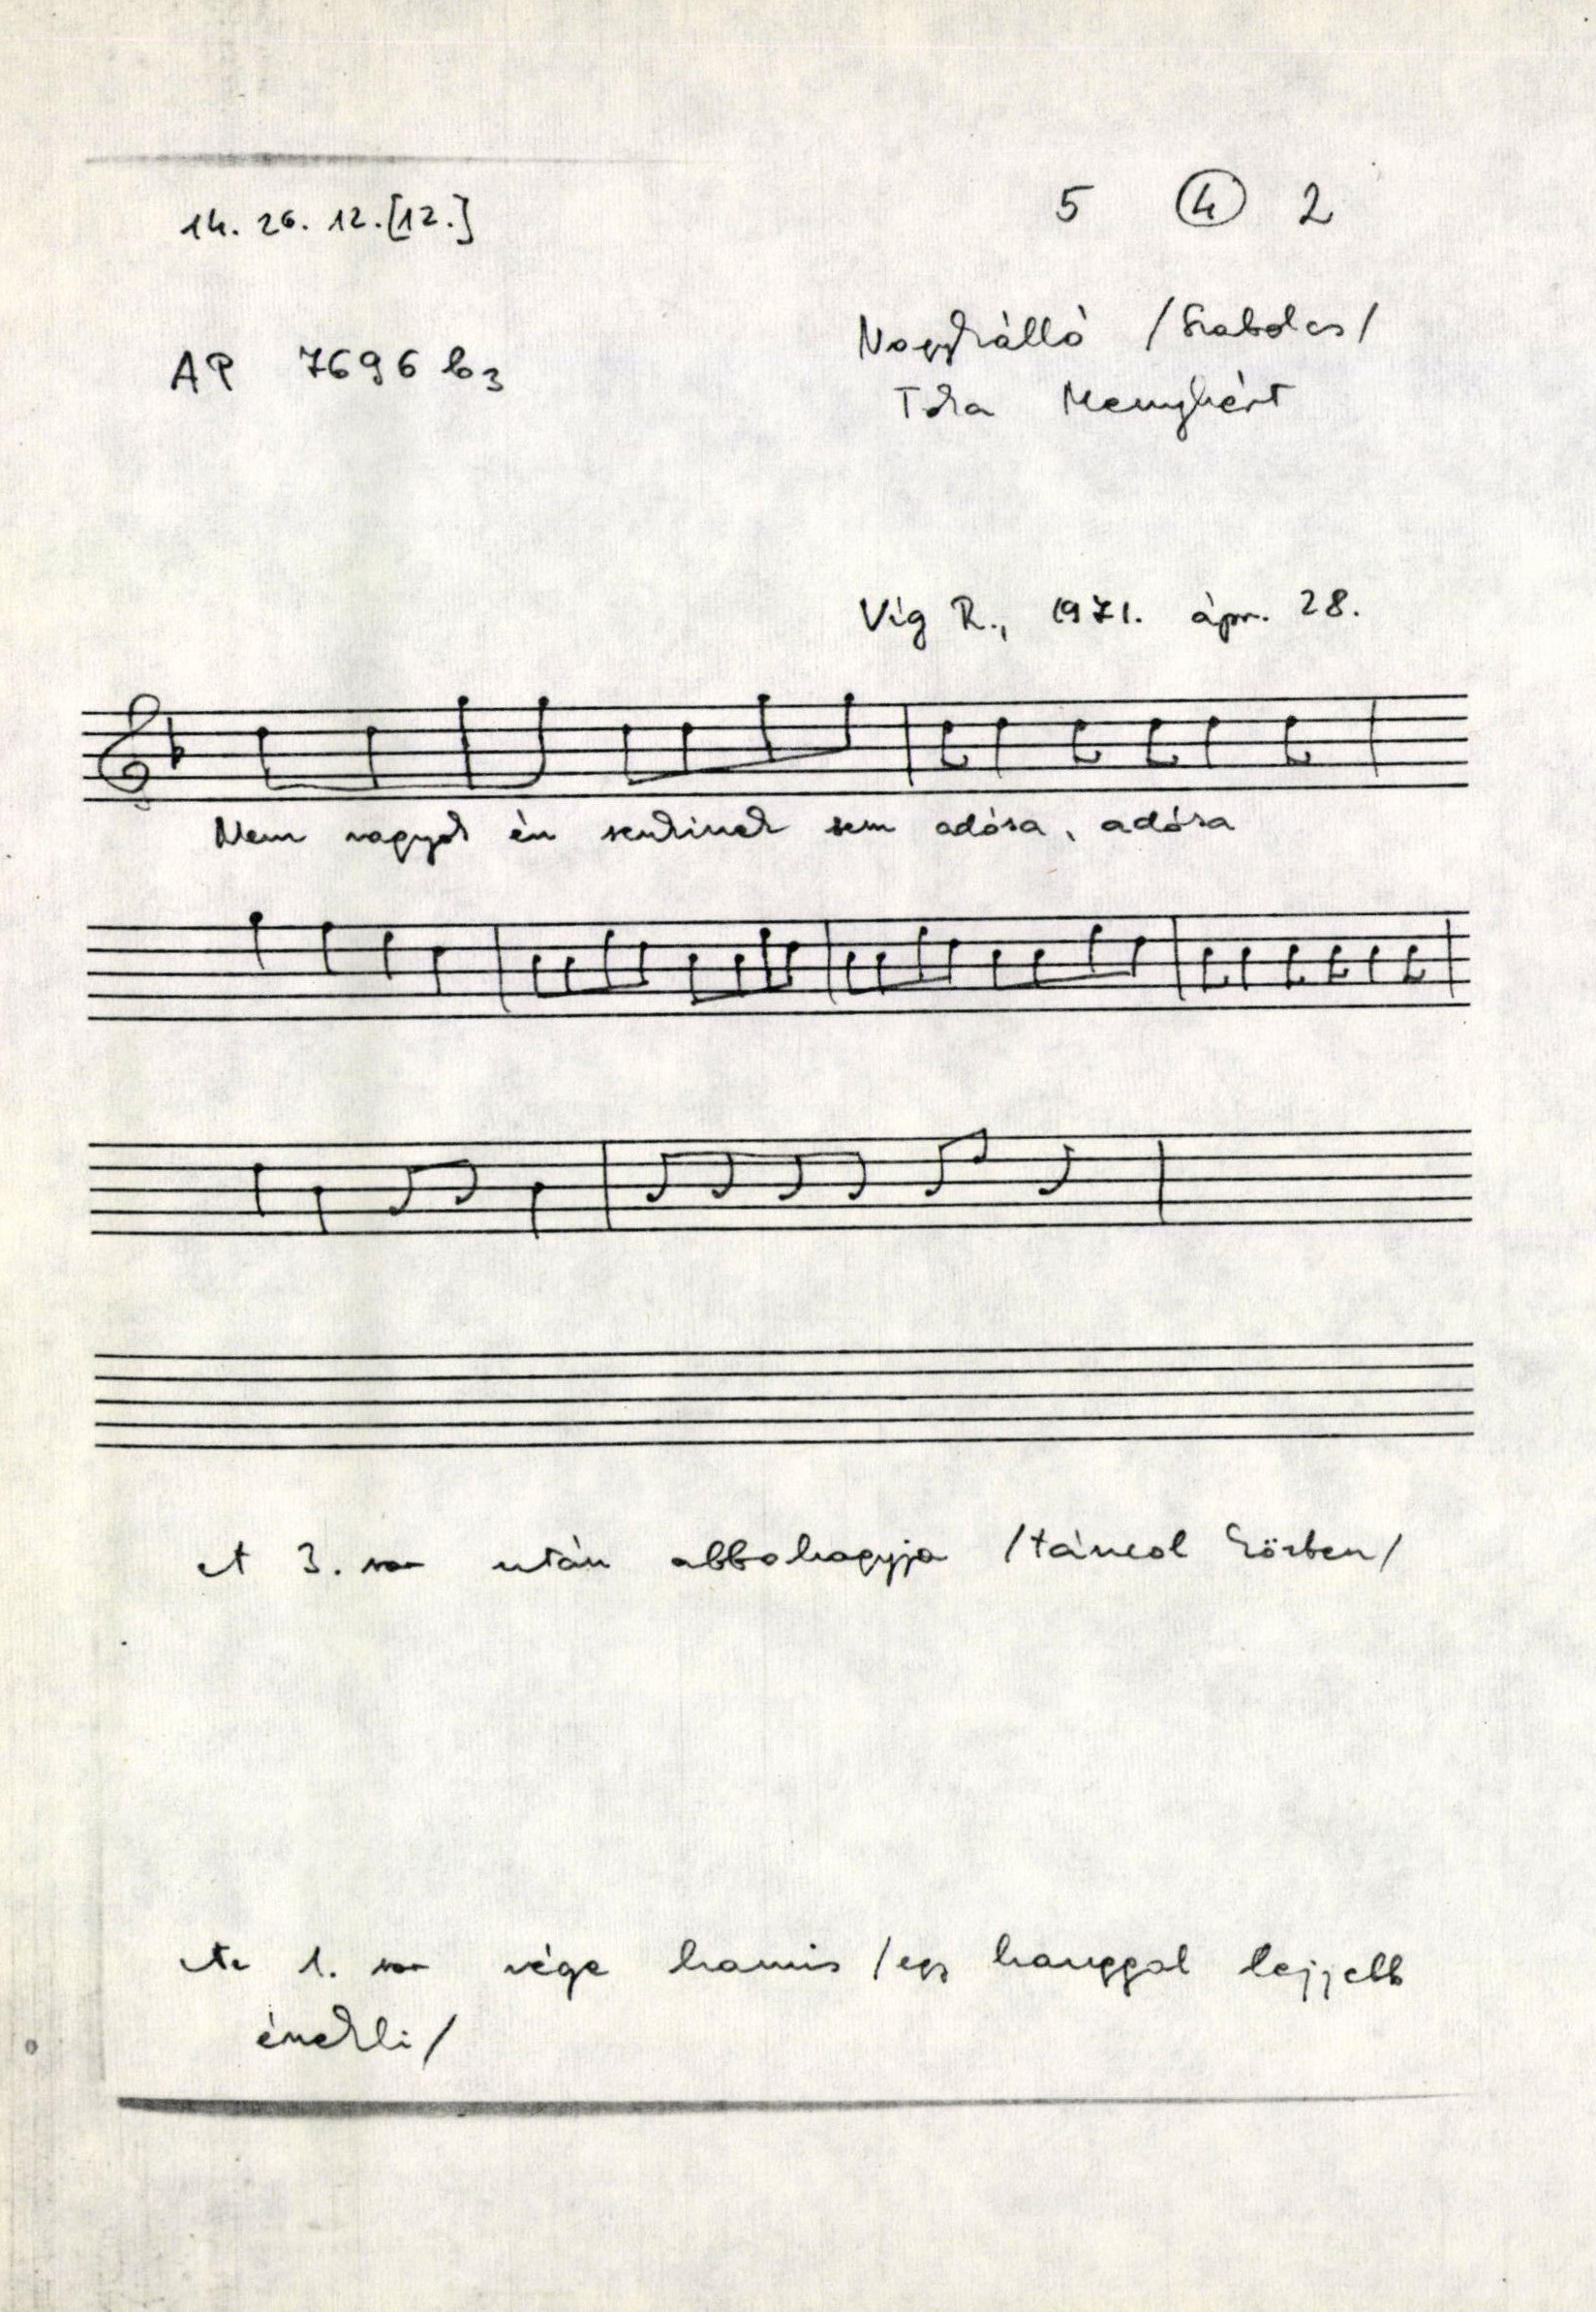 14. 26. 12.[12.]
5 4 2
AP 7696 b3
Nagykálló /Szabolcs/
Menyhért
Víg R., 1971. ápr. 28.
Nem vagyok én senkinek sem adósa, adósa
A 3. sor után abbahagyja /táncol közben/
Az 1. sor vége hamis /egy hanggal lejjebb
énekli/